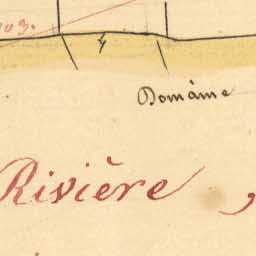 Domàine
Rivière,